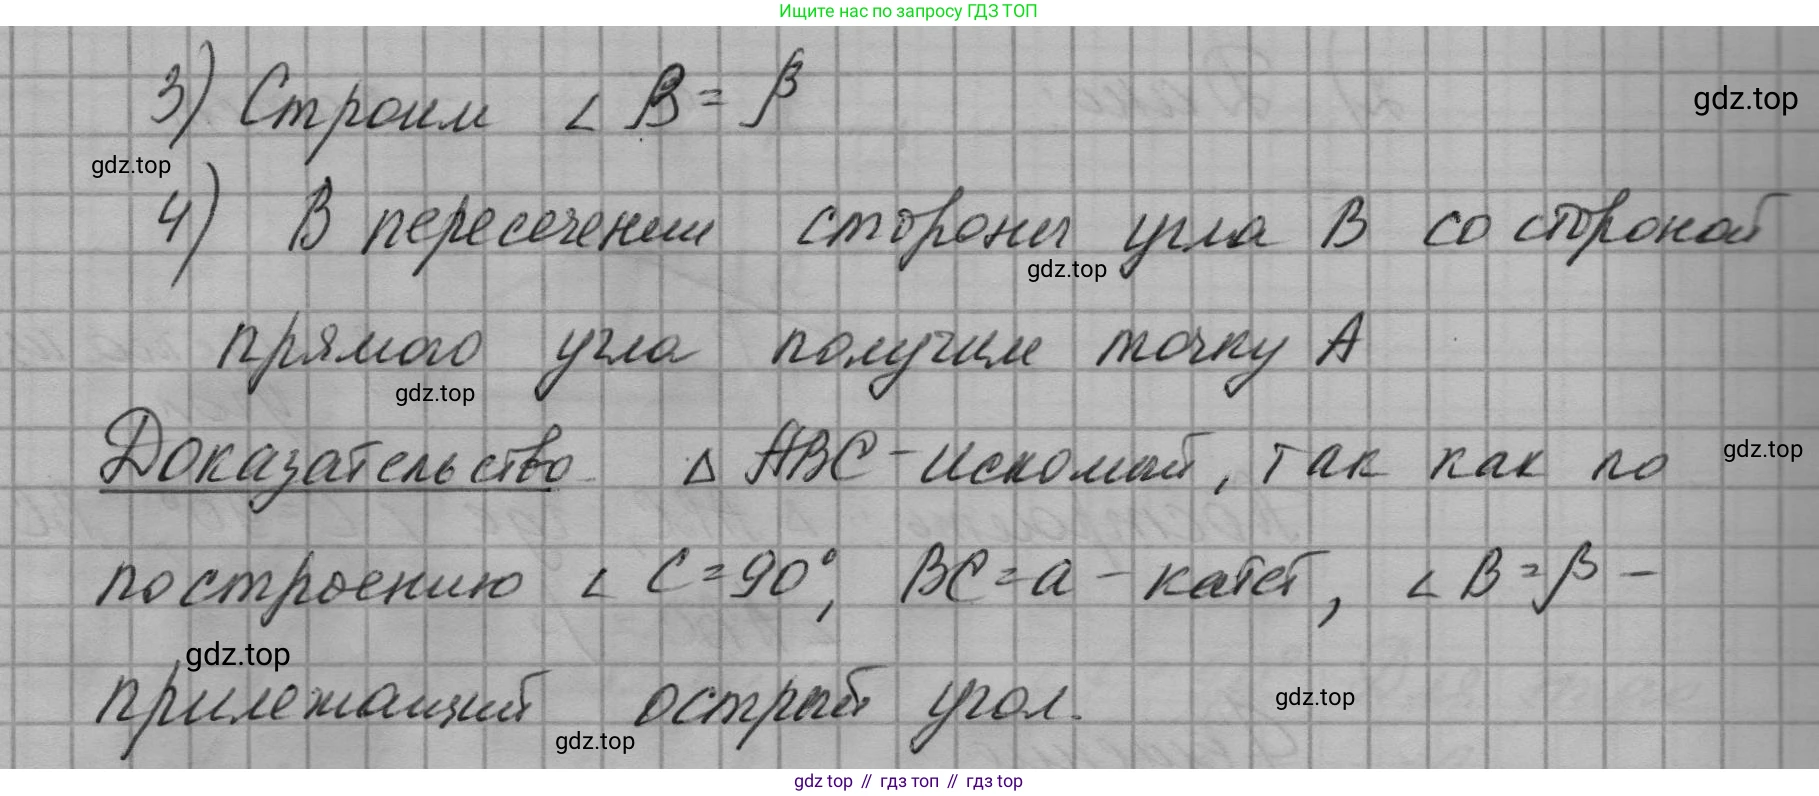 Ищите нас по запросу ГДЗ ТОП
3) Строим ∠ B = β
gdz.top
gdz.top
4) В пересечении стороны угла B со стороной
gdz.top
прямого угла получим точку A
gdz.top
Доказательство. Δ ABC - искомый, так как по
gdz.top
построению ∠ C = 90°, BC = a - катет, ∠ B = β -
gdz.top
прилежащий острый угол.
gdz.top
gdz.top
gdz top // гдз топ // гдз top